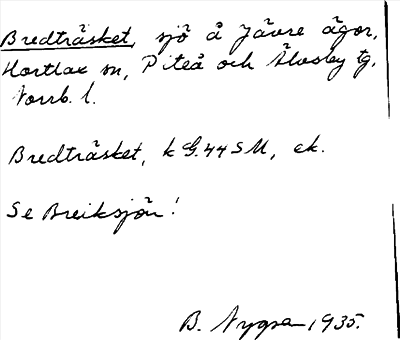 Bredträsket, sjö å Jävre ägor,
Hortlax sn, Piteå och Älvsby tg,
Norrb. l.
Bredträsket, k G.44 SM, ek.
Se Breiksjön!
B. 1935.